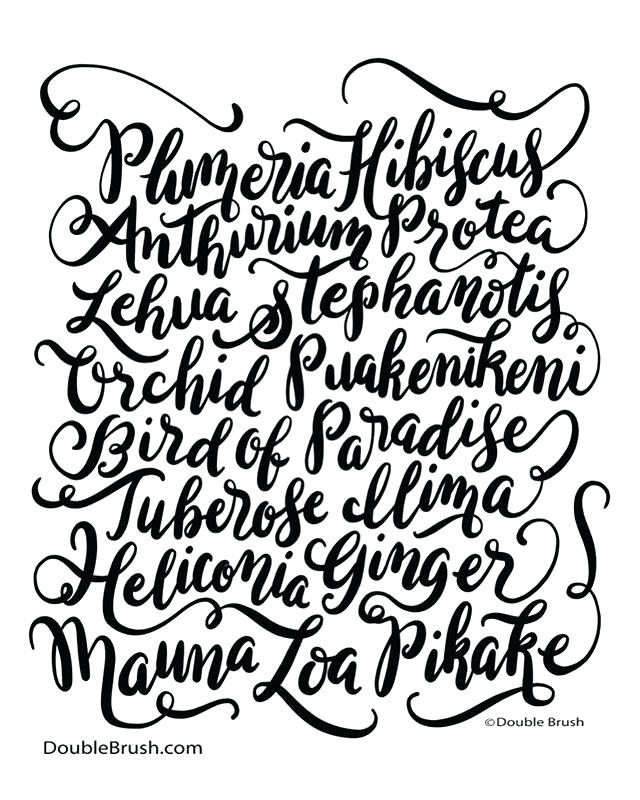 Plumeria Hibiscus
Anthurium Protea
Lehua Stephanotis
Orchid Puakenikeni
Bird of Paradise
Tuberose Ilima
Heliconia Ginger
Mauna Loa Pikake
©Double Brush
DoubleBrush.com